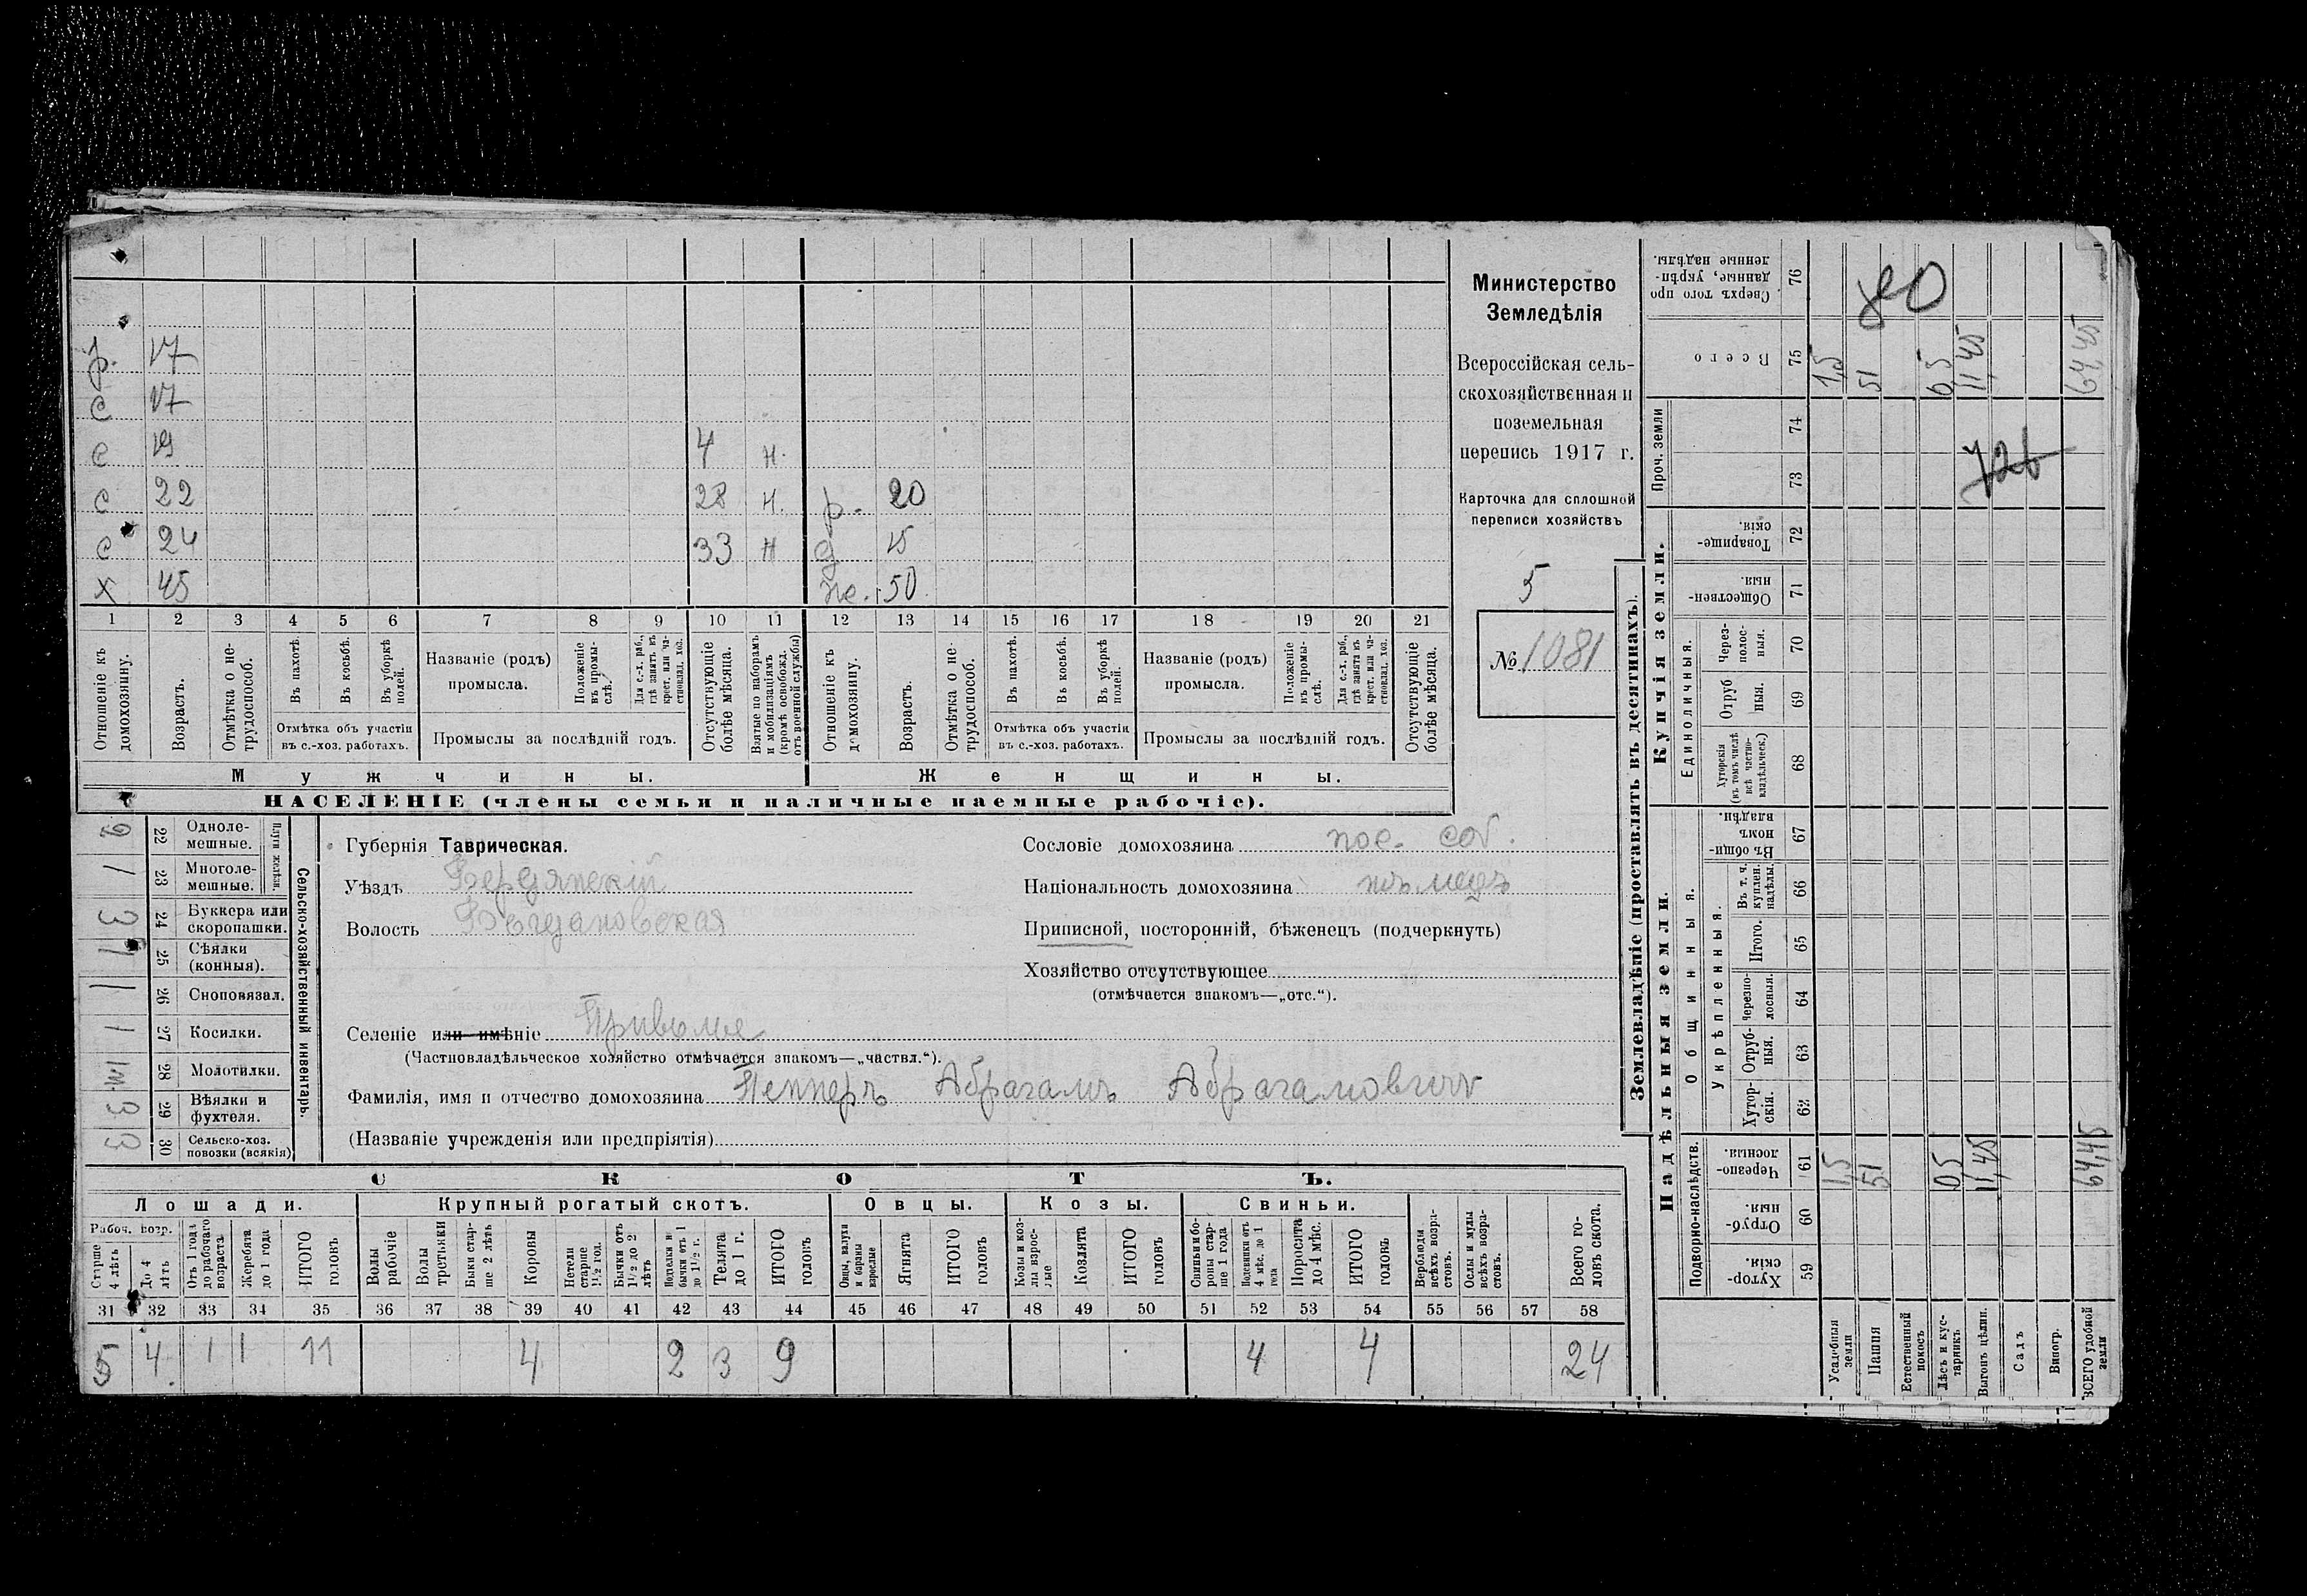 Министерство
Земледѣлія
Всероссійская сель-
скохозяйственная и
поземельная
перепись 1917 г.
Карточка для сплошной
переписи хозяйствъ
5
№ 1081
р. 17
с 17
с 19 4 н.
с 22 28 н. р. 20
с 24 33 н д 15
х 45 ж. 50
1 2 3 4 5 6 7 8 9 10 11 12 13 14 15 16 17 18 19 20 21
Отношеніе къ домохозяину.
Возрастъ.
Отмѣтка о не-трудоспособ.
Въ пахотѣ.
Въ косьбѣ.
Въ уборкѣ полей.
Отмѣтка объ участіи въ с.-хоз. работахъ.
Названіе (родъ) промысла.
Положеніе въ промы-слѣ.
Для с.-х. раб., гдѣ занятъ въ крест. или ча-стновлад. хоз.
Промыслы за послѣдній годъ.
Отсутствующіе болѣе мѣсяца.
Взятые по наборамъ и мобилизаціямъ (кромѣ освобожд. отъ военной службы)
Отношеніе къ домохозяину.
Возрастъ.
Отмѣтка о не-трудоспособ.
Въ пахотѣ.
Въ косьбѣ.
Въ уборкѣ полей.
Отмѣтка объ участіи въ с.-хоз. работахъ.
Названіе (родъ) промысла.
Положеніе въ промы-слѣ.
Для с.-х. раб., гдѣ занята въ крест. или ча-стновлад. хоз.
Промыслы за послѣдній годъ.
Отсутствующіе болѣе мѣсяца.
Мужчины. Женщины.
НАСЕЛЕНІЕ (члены семьи и наличные наемные рабочіе).
Сельско-хозяйственный инвентарь.
Плуги желѣзн.
2 22 Одноле-мешные.
1 23 Многоле-мешные.
3 24 Буккера или скоропашки.
1 25 Сѣялки (конныя).
1 26 Сноповязал.
1 27 Косилки.
28 Молотилки.
3 29 Вѣялки и фухтеля.
3 30 Сельско-хоз. повозки (всякія)
Губернія Таврическая.
Уѣздъ Бердянскій
Волость Богдановская
Селеніе или имѣніе Приволье
(Частновладѣльческое хозяйство отмѣчается знакомъ—„частвл.“).
Фамилія, имя и отчество домохозяина Пеннеръ Абрагамъ Абрагамовичъ
(Названіе учрежденія или предпріятія)
Сословіе домохозяина пос. соб.
Національность домохозяина нѣмецъ
Приписной, посторонній, бѣженецъ (подчеркнуть)
Хозяйство отсутствующее
(отмѣчается знакомъ—„отс.“).
СКОТЪ.
Лошади. Крупный рогатый скотъ. Овцы. Козы. Свиньи.
Рабоч. возр.
Старше 4 лѣтъ
До 4 лѣтъ
Отъ 1 года до рабочаго возраста
Жеребята до 1 года
ИТОГО головъ
Волы рабочіе
Волы третьяки
Быки стар-ше 2 лѣтъ
Коровы
Нетели старше 1½ год.
Бычки отъ 1½ до 2 лѣтъ
Подтелки и бычки отъ 1 до 1½ г.
Телята до 1 г.
ИТОГО головъ
Овцы, валухи и бараны взрослые
Ягнята
ИТОГО головъ
Козы и коз-лы взрос-лые
Козлята
ИТОГО головъ
Свиньи и бо-ровы стар-ше 1 года
Подсвинки отъ 4 мѣс. до 1 года
Поросята до 4 мѣс.
ИТОГО головъ
Верблюды всѣхъ возра-стовъ.
Ослы и мулы всѣхъ возра-стовъ.
Всего го-ловъ скота.
31 32 33 34 35 36 37 38 39 40 41 42 43 44 45 46 47 48 49 50 51 52 53 54 55 56 57 58
5 4 1 1 11 4 2 3 9 4 4 24
Землевладѣніе (проставлять въ десятинахъ).
Купчія земли.
Надѣльныя земли.
Проч. земли
Единоличныя.
Общинныя.
Укрѣпленныя.
Подворно-наслѣдств.
76 Сверхъ того про данные, укрѣп-ленные надѣлы.
75 Всего 1,5 51 0,5 11,45 64,45
74
73
72 Товарище-скія.
71 Обществен-ныя.
70 Через-полос-ныя.
69 Отруб ныя.
68 Хуторскія (въ томъ числѣ всѣ частно-владѣльческ.)
67 Въ общин-номъ владѣн.
66 Въ т. ч. куплен. надѣлы.
65 Итого.
64 Черезпо-лосныя.
63 Отруб-ныя.
62 Хутор-скія.
61 Черезпо-лосныя. 1,5 51 0,5 11,45 64,45
60 Отруб-ныя.
59 Хутор-скія.
726
Усадебныя земли
Пашня
Естественный покосъ
Лѣсъ и кус-тарникъ
Выгонъ цѣлин.
Садъ
Виногр.
ВСЕГО удобной земли